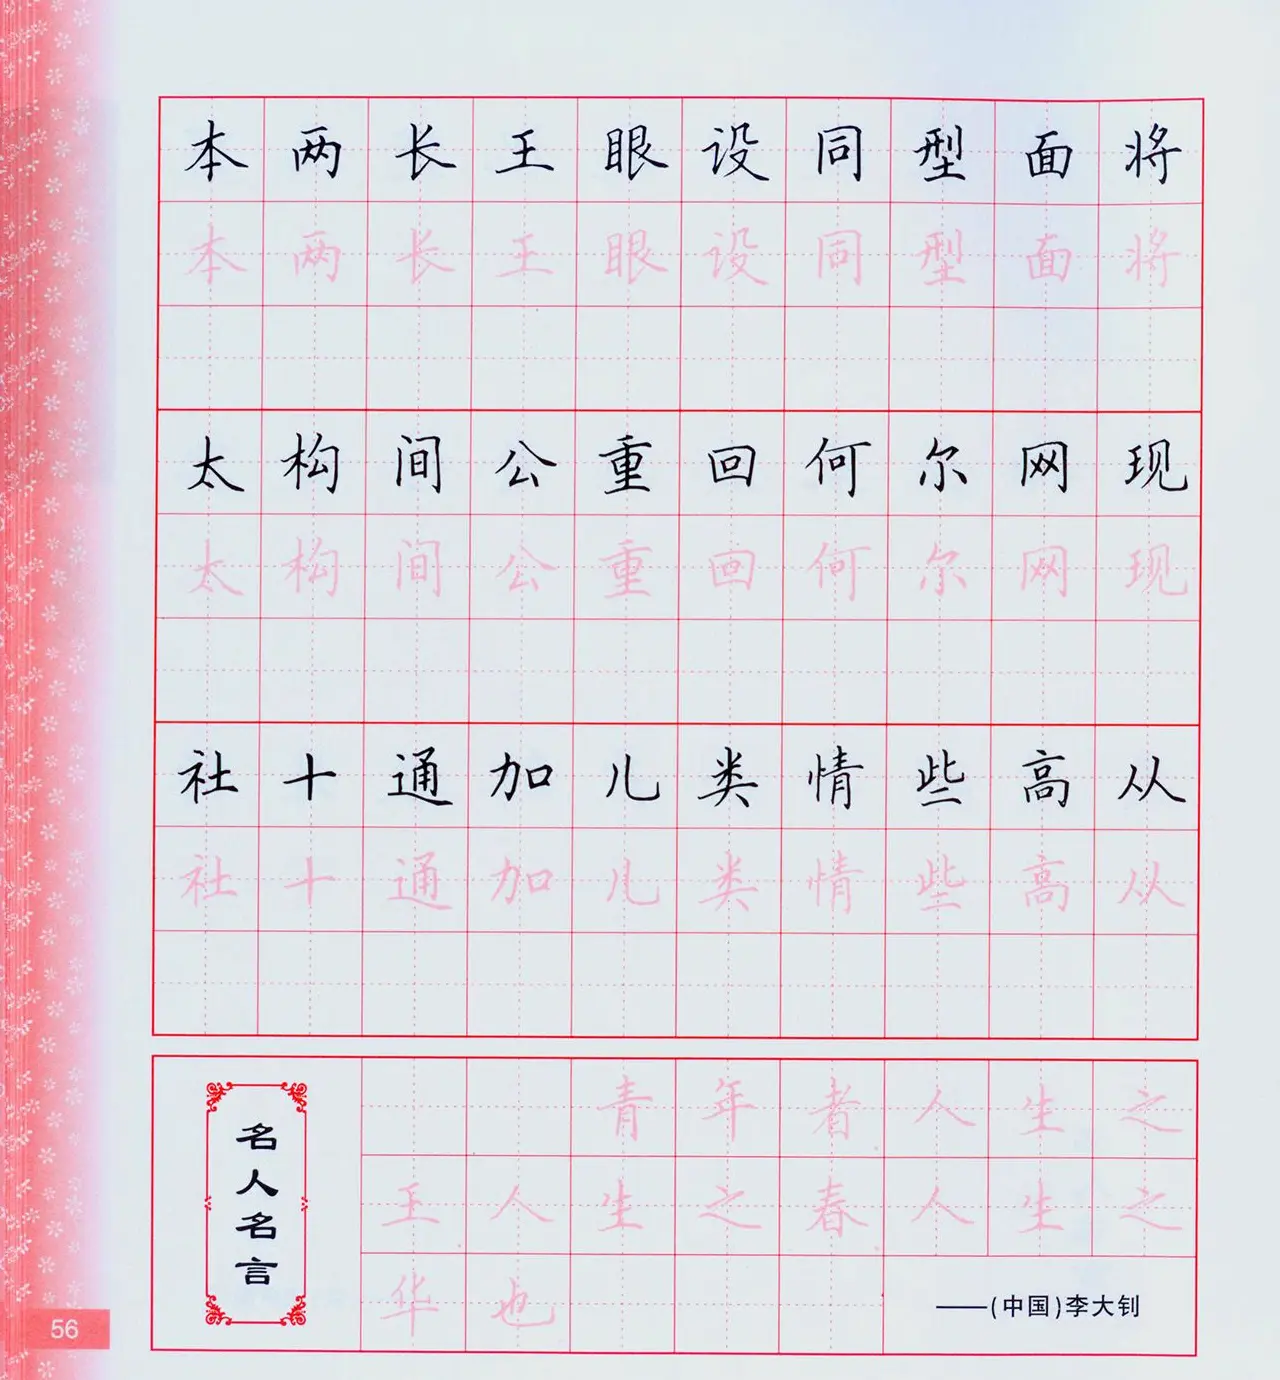 本两长王眼设同型面将
本两长王眼设同型面将
太构间公重回何尔网现
太构间公重回何尔网现
社十通加儿类情些高从
社十通加儿类情些高从
名人名言
青年者人生之
王人生之春人生之
华也
——(中国)李大钊
56